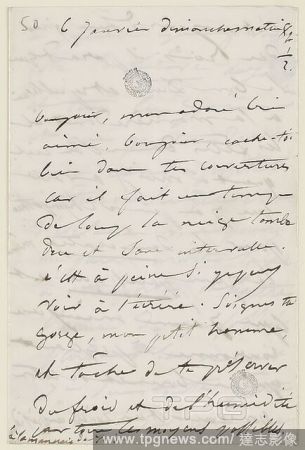 50
6 Janvier dimanche matin 8h ½
Bonjour, mon adoré bien
aimé, bonjour, cache-toi
bien dans tes couvertures
car il fait un temps
de loup, la neige tombe
dru et sans intervalle.
C'est à peine si j'y
vois à t'écrire. Soigne ta
gorge, mon petit homme,
et tâche de te préserver
du froid et de l'humidité
par tous les moyens possibles,
www.tpgnews.com / 達志影像